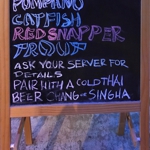 POMPANO
CATFISH
RED SNAPPER
TROUT
ASK YOUR SERVER FOR
DETAILS
PAIR WITH A COLD THAI
BEER CHANG OR SINGHA